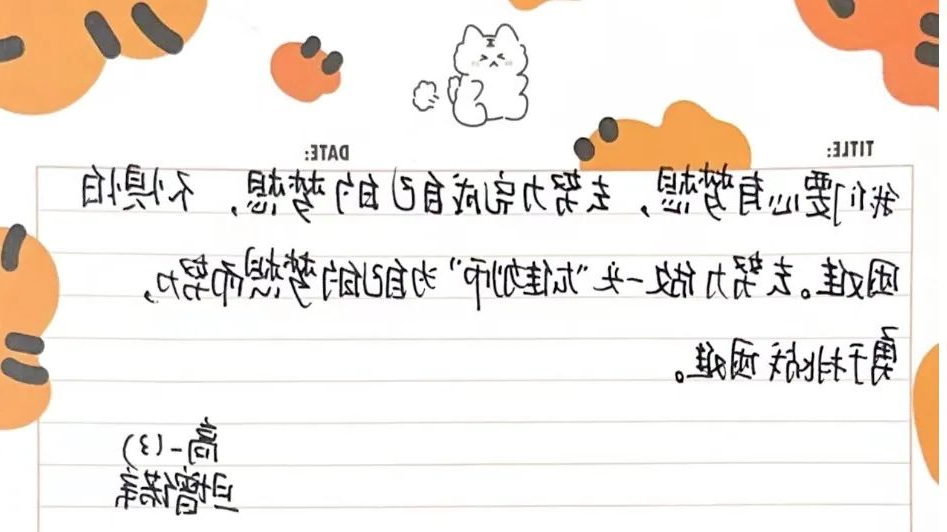 TITLE: DATE:
我们要心有梦想，去努力完成自己的梦想，不惧怕
困难。去努力做一头“尤雄狮”为自己的梦想而努力，
勇于挑战困难。
高一（3）
旦增